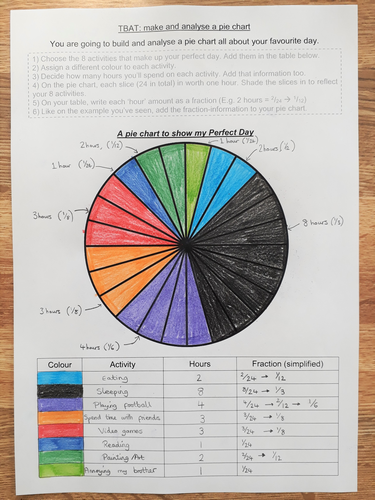 TBAT: make and analyse a pie chart
You are going to build and analyse a pie chart all about your favourite day.
1) Choose the 8 activities that make up your perfect day. Add them in the table below.
2) Assign a different colour to each activity.
3) Decide how many hours you'll spend on each activity. Add that information too.
4) On the pie chart, each slice (24 in total) in worth one hour. Shade the slices in to reflect
your 8 activities.
5) On your table, write each 'hour' amount as a fraction (E.g. 2 hours = 2/24 → 1/12)
6) Like on the example you've seen, add the fraction-information to your pie chart.
A pie chart to show my Perfect Day
2 hours, (1/12)
1 hour (1/24)
2 hours (
1 hour (1/24)
3 hours (1/8)
8 hours (1/3)
3 hours (1/8)
4 hours (1/6)
Colour Activity Hours Fraction (simplified)
Eating 2 2/24 → 1/12
Sleeping 8 8/24 → 1/3
Playing football 4 4/24 → 2/12 → 1/6
Spend time with friends 3 3/24 → 1/8
Video games 3 3/24 → 1/8
Reading 1 1/24
Painting/Art 2 2/24 → 1/12
Annoying my brother 1 1/24